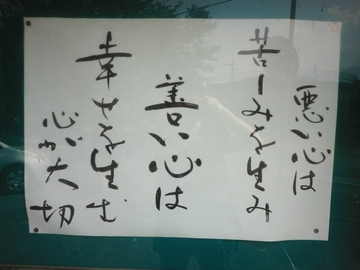 悪い心は
苦しみを生み
善い心は
幸せを生む
心が大切